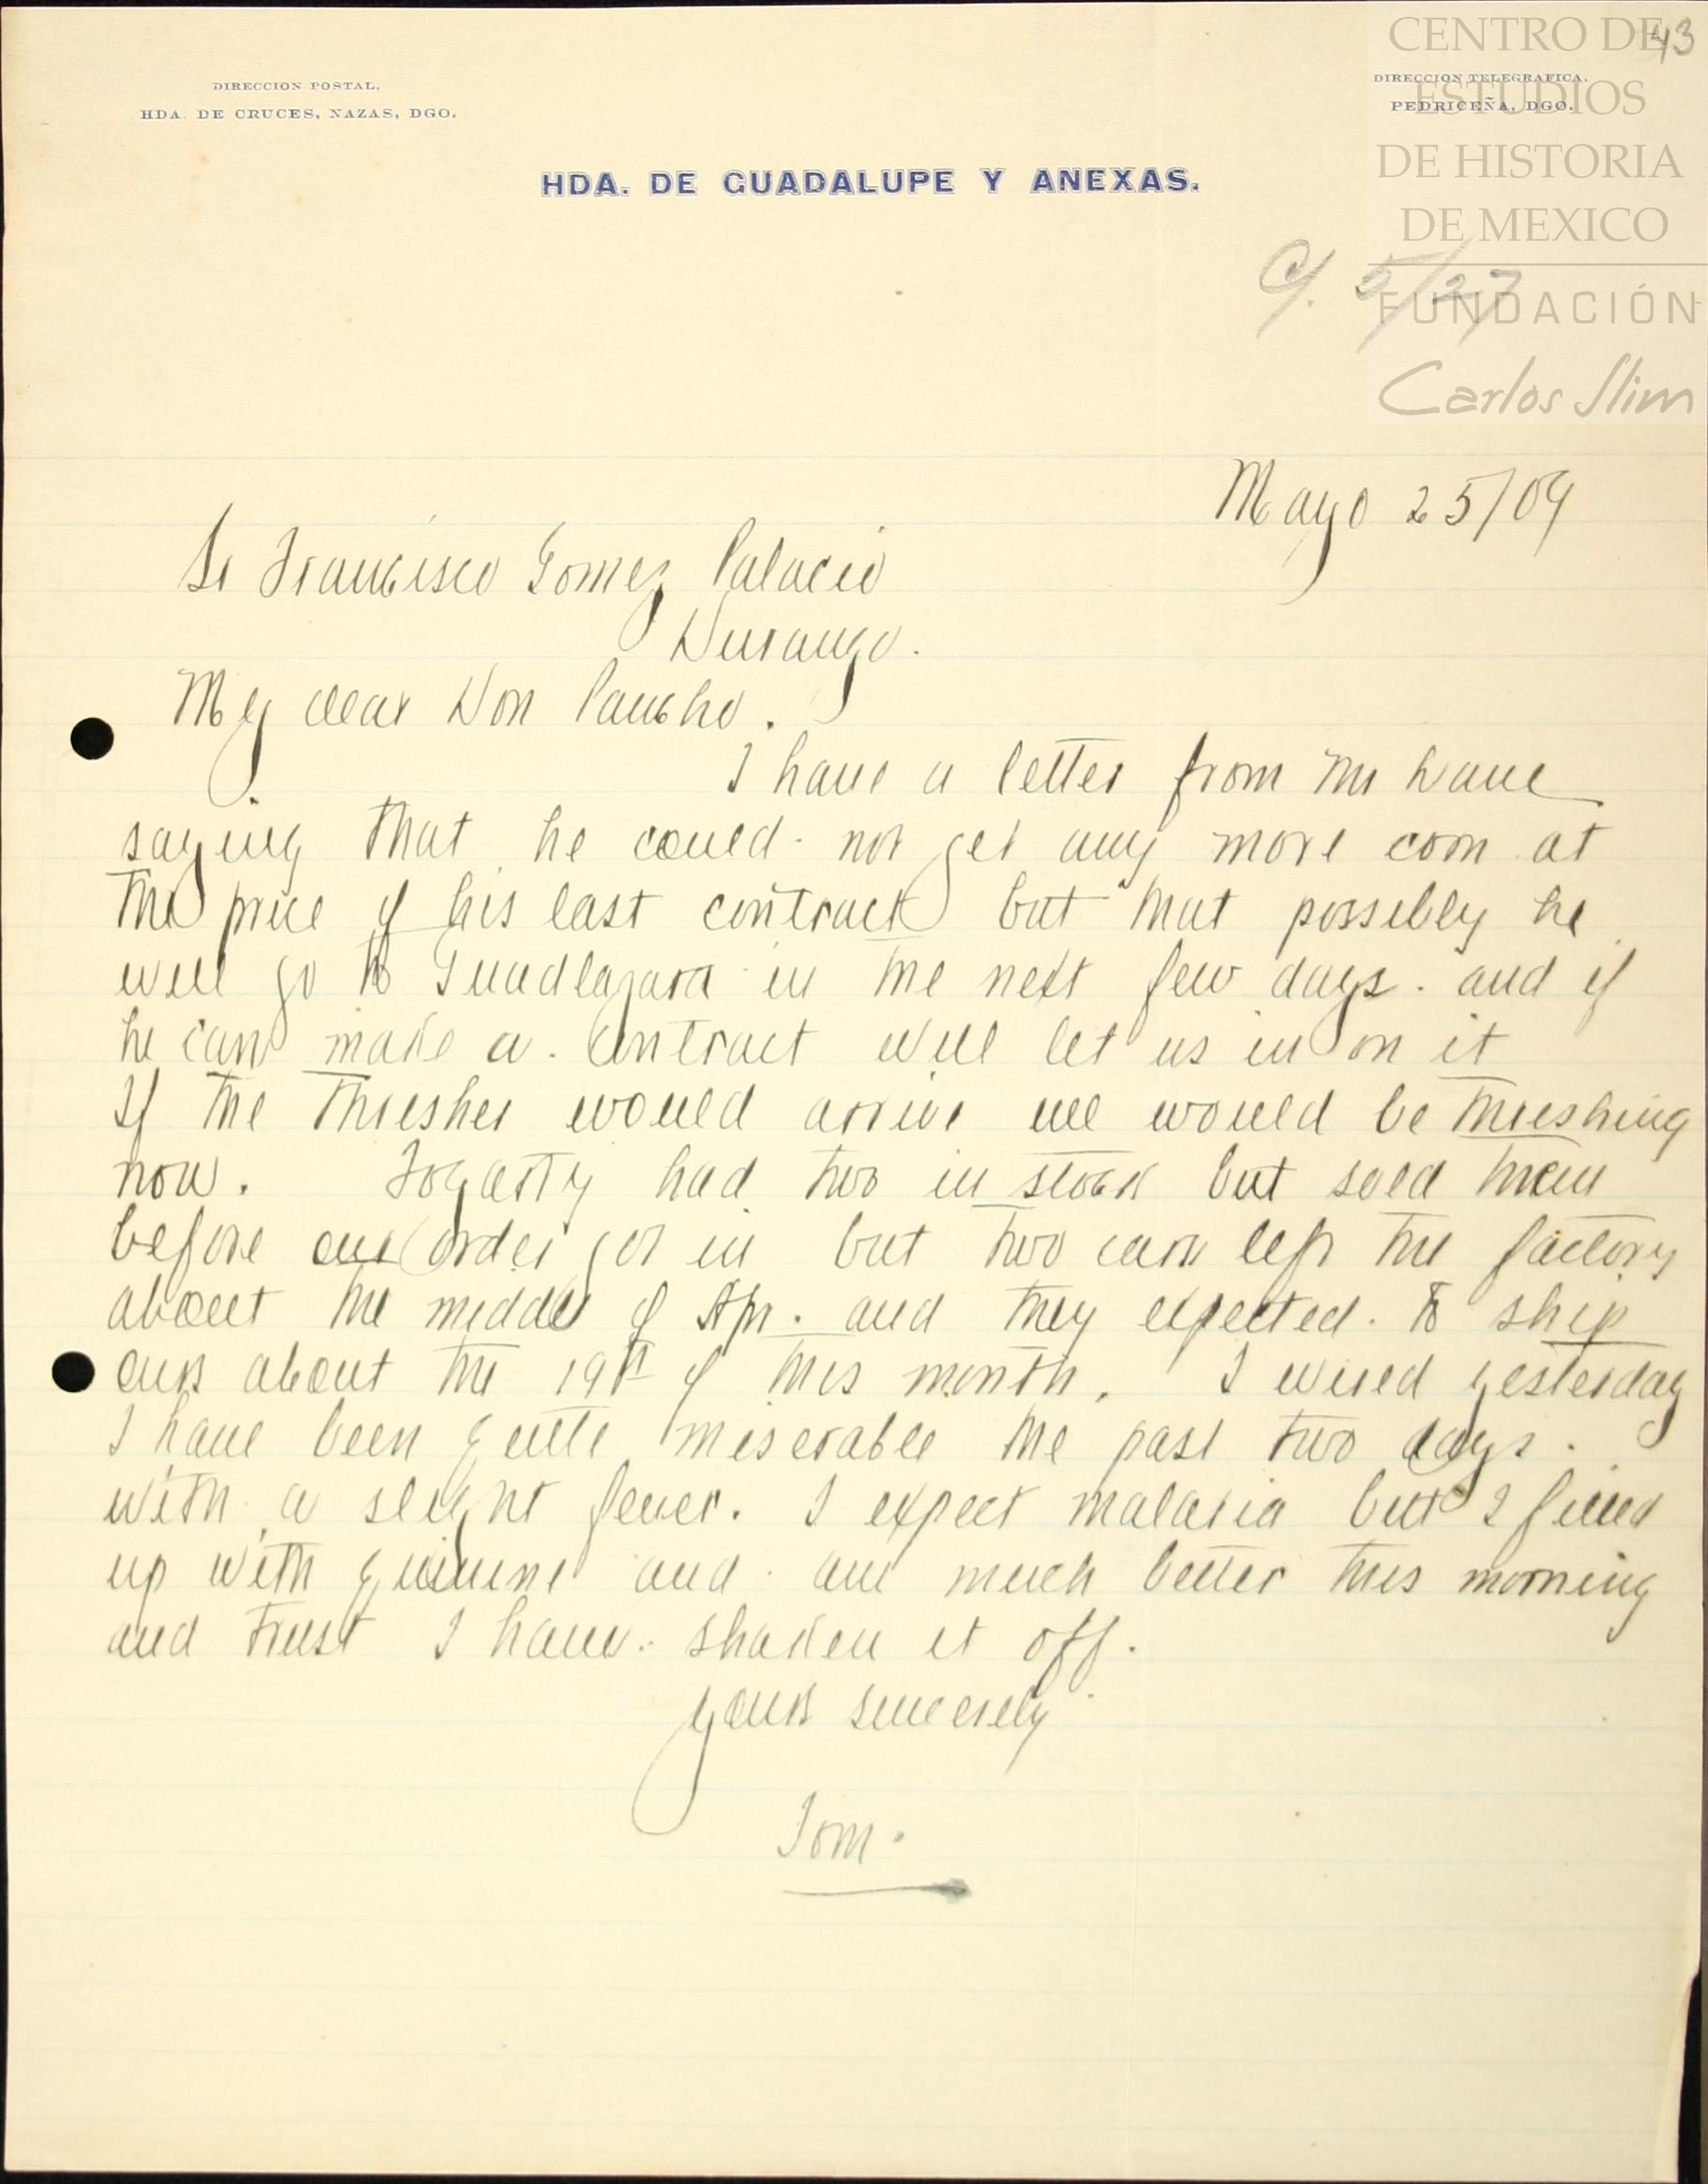 43
CENTRO DE
ESTUDIOS
DE HISTORIA
DE MEXICO
FUNDACIÓN
Carlos Slim
DIRECCION POSTAL.
HDA. DE CRUCES, NAZAS, DGO.
DIRECCION TELEGRAFICA.
PEDRICEÑA, DGO.
HDA. DE GUADALUPE Y ANEXAS.
C/. 5/27
Mayo 25/09
Sr Francisco Gomez Palacio
Durango.
My dear Don Pancho.
I have a letter from Mr
saying that he could not get any more corn at
the price of his last contract but that possibly he
will go to Guadlajara in the next few days. and if
he can make a contract will let us in on it
If the Thresher would arrive we would be threshing
now. Fogarty had two in stock but sold them
before our order got in but two cars left the factory
about the middle of Apr. and they expected to ship
ours about the 19th of this month. I wired yesterday
I have been quite miserable the past two days.
with a slight fever. I expect malaria but I filled
up with quinine and am much better this morning
and trust I have shaken it off.
yours sincerely
Tom.